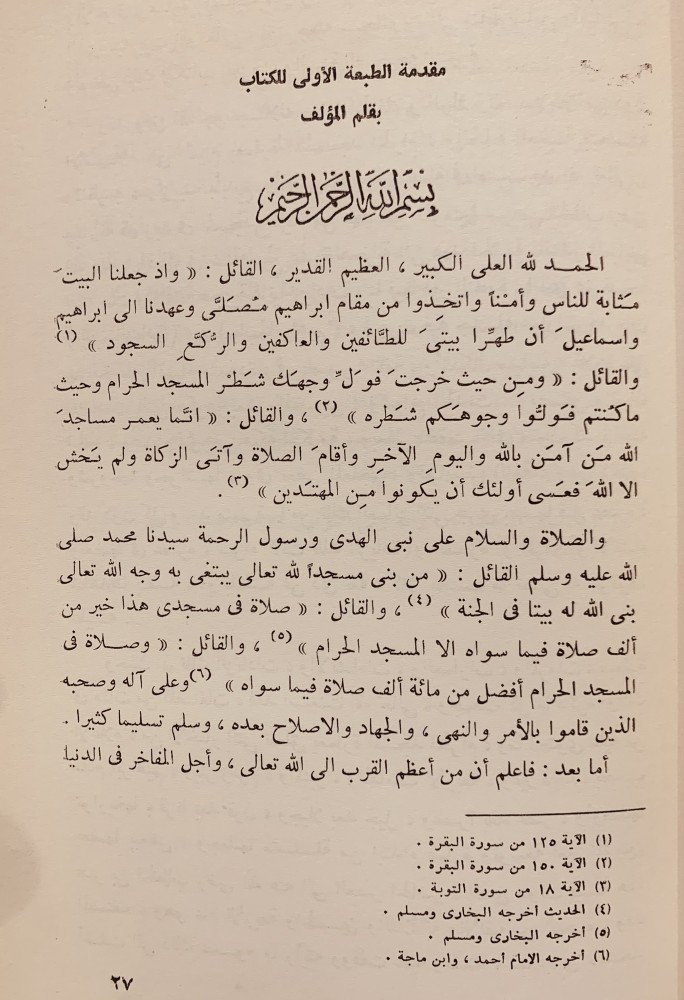 مقدمة الطبعة الأولى للكتاب
بقلم المؤلف
بسم الله الرحمن الرحيم
الحمـــد لله العلى الكبير ، العظيم القدير ، القائل : « واذ جعلنا البيتَ
مَثابة للناس وأمْناً واتخِذوا من مقام ابراهيم مُصَلَّى وعهدنا الى ابراهيم
واسماعيلَ أن طهِّرا بيتىَ للطَّائفين والعاكفين والرُّكَّعِ السجود » (١)
والقائل : « ومِن حيث خرجتَ فوَلِّ وجهَك شَطْر المسجد الحرام وحيث
ماكُنتم فَولُّوا وجوهَكم شَطره » (٢) ، والقائل : « انَّما يعمر مساجدَ
الله مَن آمَن بالله واليومِ الآخِر وأقامَ الصلاة وآتَى الزكاة ولم يَخش
الا اللهَ فعسَى أولئك أن يكونوا مِن المهتَدين » (٣) .
والصلاة والسلام على نبى الهدى ورسول الرحمة سيدنا محمد صلى
الله عليه وسلم القائل : « من بنى مسجداً لله تعالى يبتغى به وجه الله تعالى
بنى الله له بيتا فى الجنة » (٤) ، والقائل : « صلاة فى مسجدى هذا خير من
ألف صلاة فيما سواه الا المسجد الحرام » (٥) ، والقائل : « وصــلاة فى
المسجد الحرام أفضل من مائة ألف صلاة فيما سواه » (٦) وعلى آله وصحبه
الذين قاموا بالأمر والنهى ، والجهاد والاصلاح بعده ، وسلم تسليما كثيرا .
أما بعد : فاعلم أن من أعظم القرب الى الله تعالى ، وأجل المفاخر فى الدنيا
(١) الآية ١٢٥ من سورة البقرة .
(٢) الآية ١٥٠ من سورة البقرة .
(٣) الآية ١٨ من سورة التوبة .
(٤) الحديث أخرجه البخارى ومسلم .
(٥) أخرجه البخارى ومسلم .
(٦) أخرجه الامام أحمد ، وابن ماجة .
٢٧